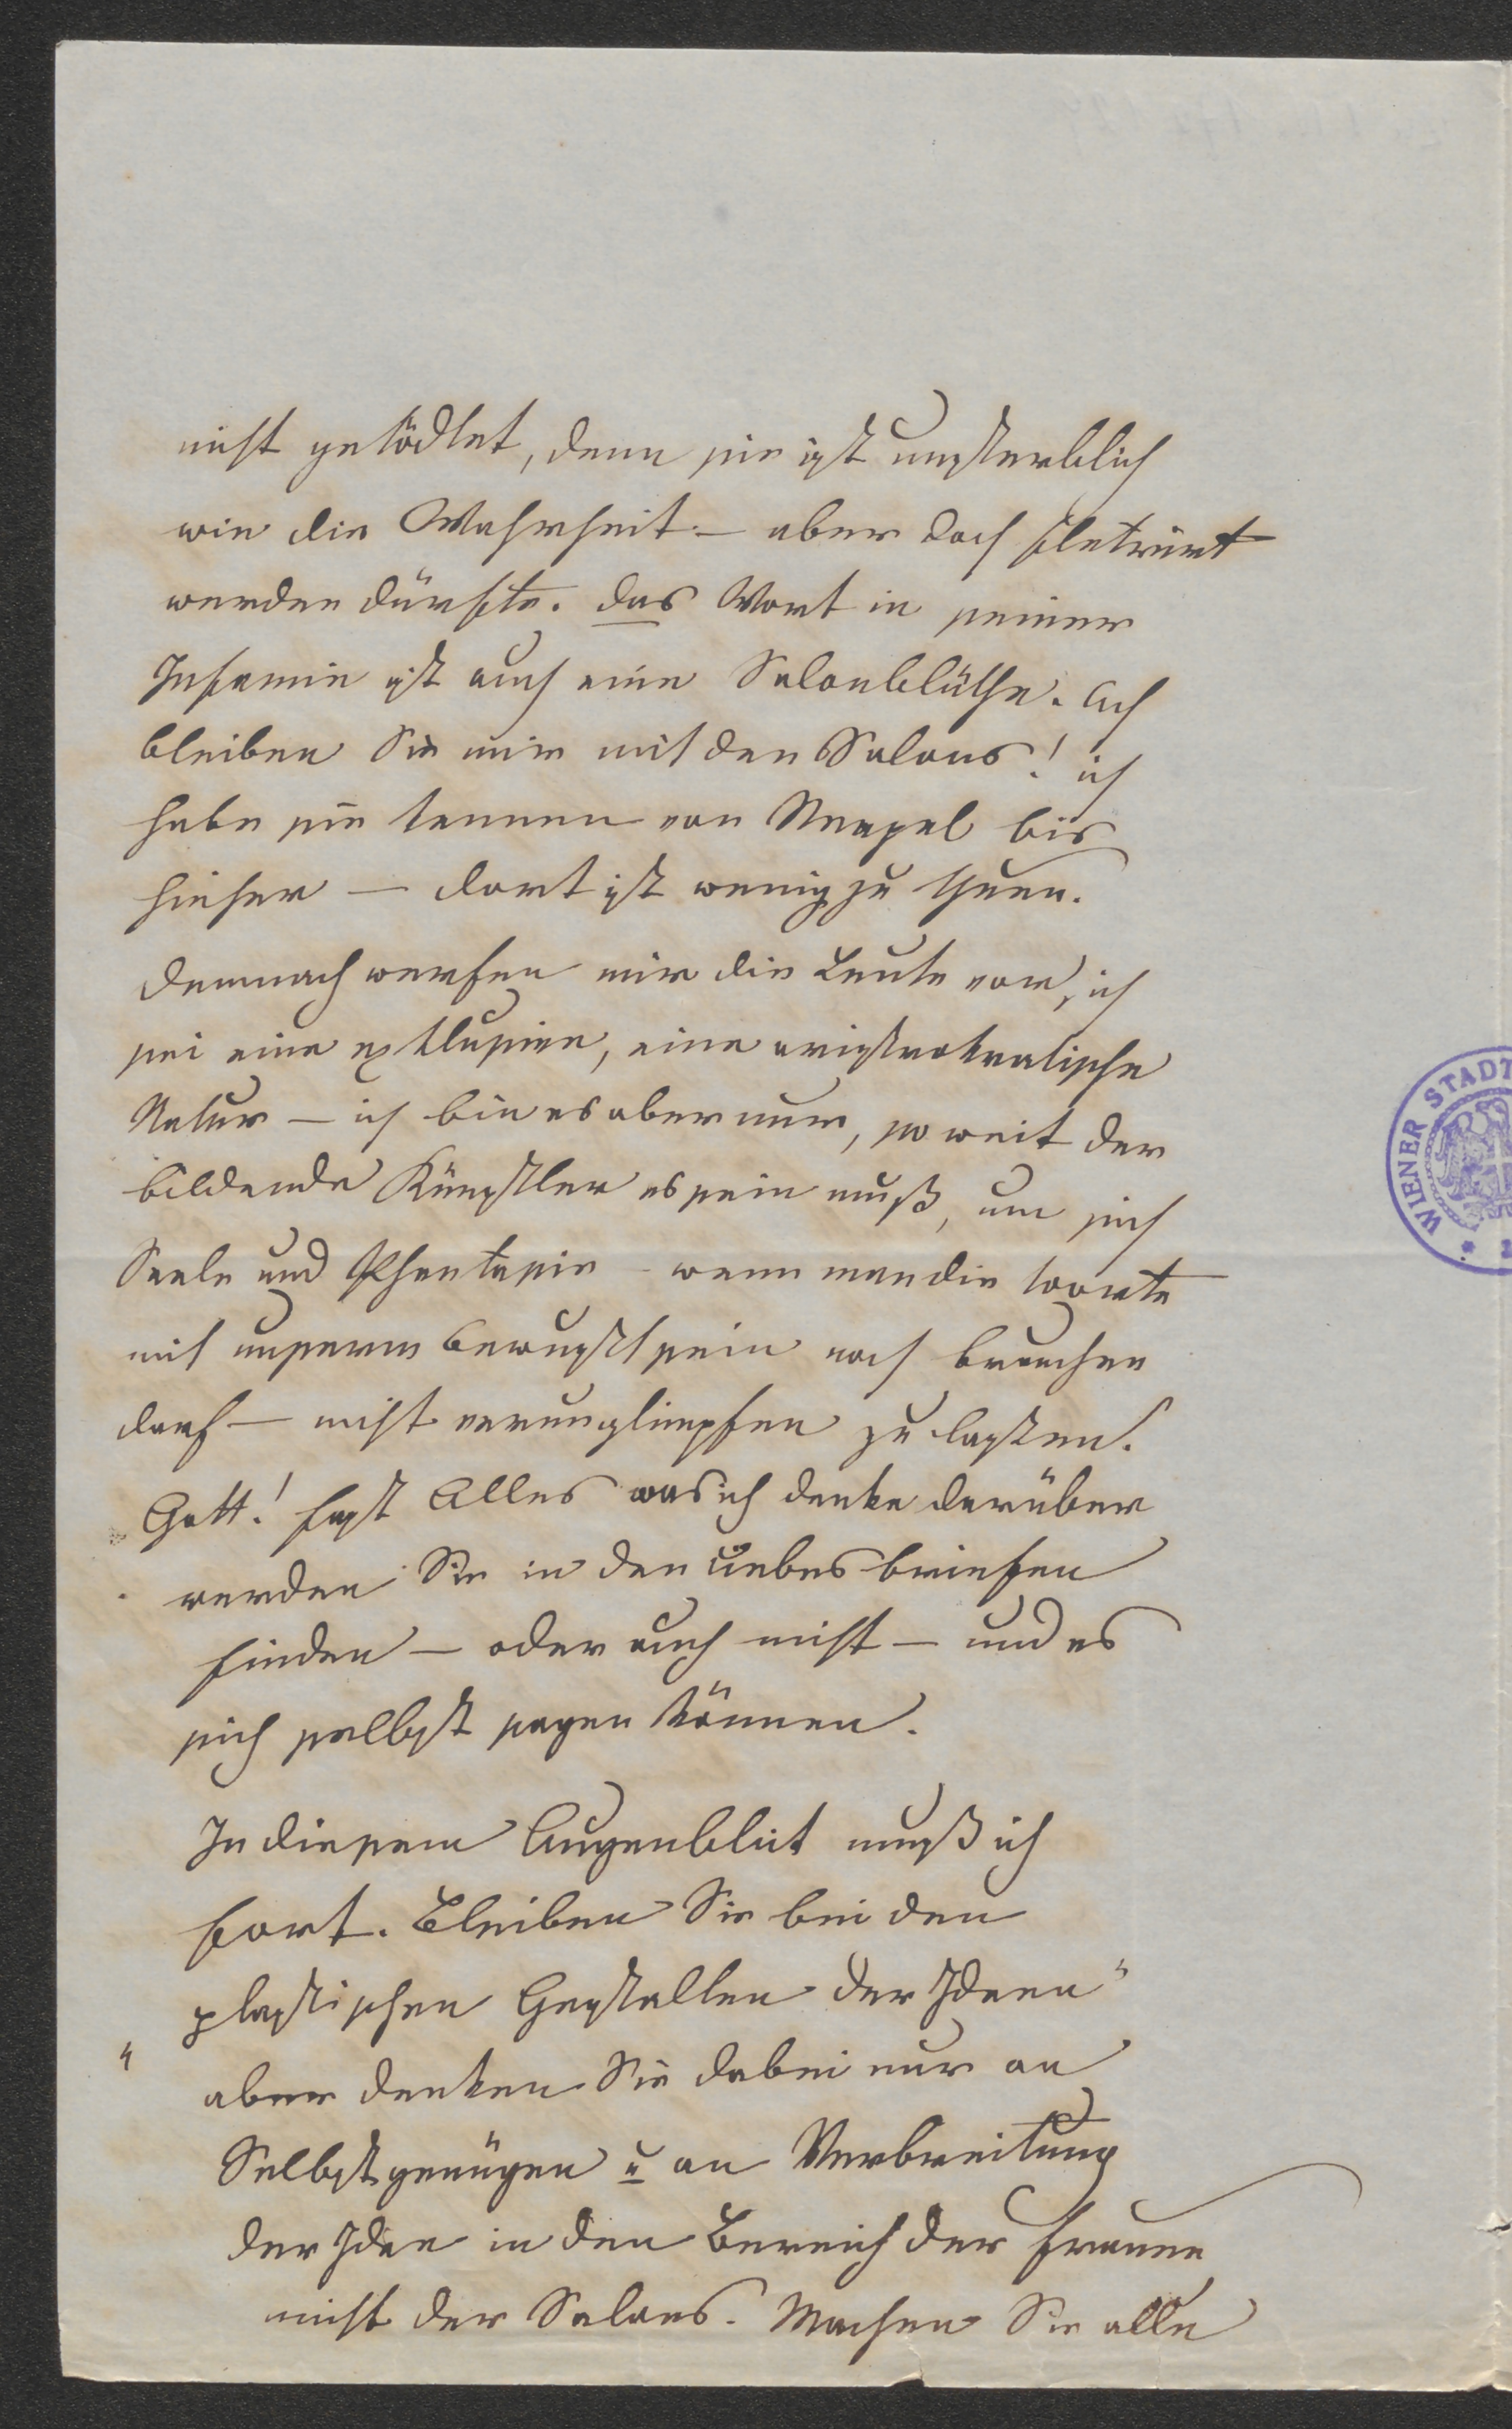 nicht getödtet, denn sie ist unsterblich
wie die Wahrheit – aber doch fletrirt
werden dürfte. Das Wort in seiner
Infamie ist auch eine Salonblüthe. Ach
bleiben Sie mir mit den Salons! ich
habe sie kennen von Neapel bis
hieher – dort ist wenig zu thuen.
Demnach werfen mir die Leute vor, ich
sei eine exklusive, eine aristrokratische
Natur – ich bin es aber nur, so weit der
bildende Künstler es sein muß, um sich
Seele und Phantasie – wenn man die Worte
mit unserm Bewußtsein noch brauchen
darf – nicht verunglimpfen zu lassen.
Gott! fast Alles was ich denke darüber
werden Sie in den Liebesbriefen
finden – oder auch nicht – und es
sich selbst sagen können.
In diesem Augenblick muß ich
fort. Bleiben Sie bei den
„plastischen Gestalten der Ideen"
aber denken Sie dabei nur an
Selbstgenügen u an Verbreitung
der Idee in den Bereich der Frauen
nicht der Salons. Machen Sie alle
WIENER STADT